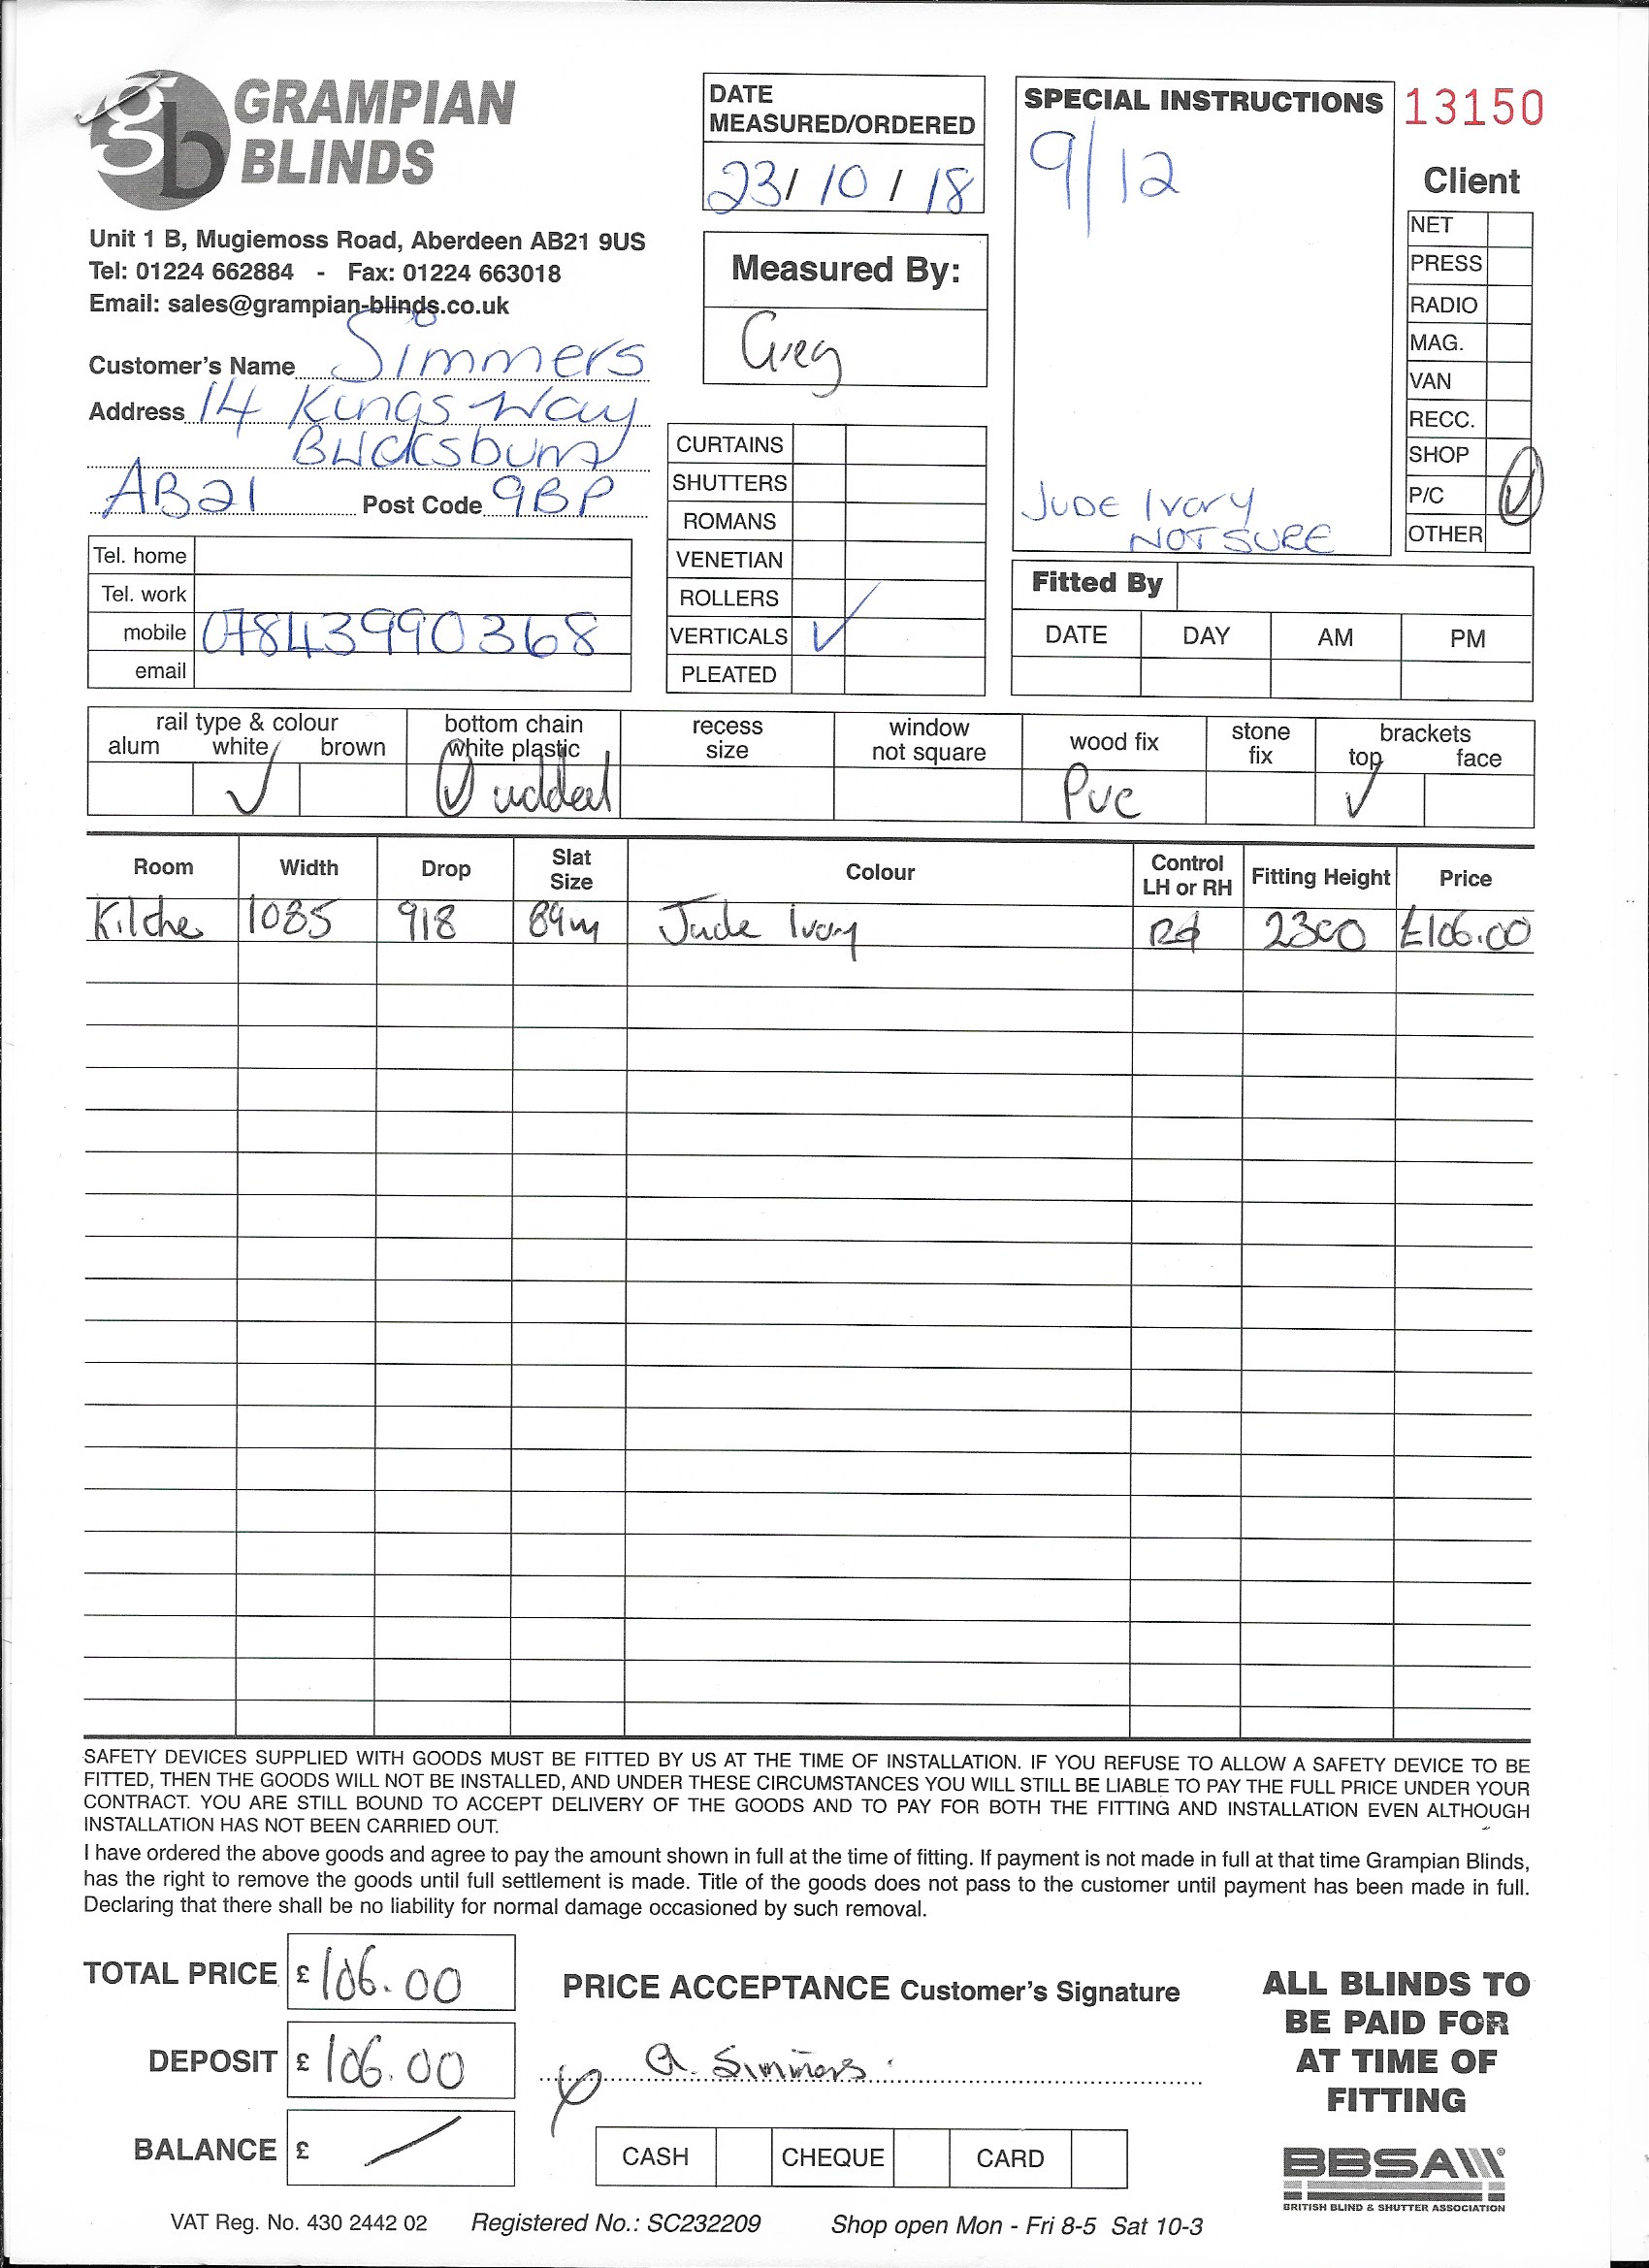 GRAMPIAN
BLINDS
Unit 1 B, Mugiemoss Road, Aberdeen AB21 9US
Tel: 01224 662884 - Fax: 01224 663018
Email: sales@grampian-blinds.co.uk
Customer's Name Simmers
Address 14 Kings Way
Bucksburn
AB21 Post Code 9BP
Tel. home
Tel. work
mobile 07843990368
email
DATE
MEASURED/ORDERED
23/10/18
Measured By:
Greg
CURTAINS
SHUTTERS
ROMANS
VENETIAN
ROLLERS
VERTICALS ✓
PLEATED
SPECIAL INSTRUCTIONS
9/12
JUDE Ivory
NOT SURE
13150
Client
NET
PRESS
RADIO
MAG.
VAN
RECC.
SHOP
P/C ✓
OTHER
Fitted By
DATE DAY AM PM
rail type & colour
alum white brown
✓
bottom chain
white plastic
✓ added
recess
size
window
not square
wood fix
PVC
stone
fix
brackets
top face
✓
Room Width Drop Slat Size Colour Control LH or RH Fitting Height Price
Kitchen 1085 918 89m Jude Ivory 2300 £106.00
SAFETY DEVICES SUPPLIED WITH GOODS MUST BE FITTED BY US AT THE TIME OF INSTALLATION. IF YOU REFUSE TO ALLOW A SAFETY DEVICE TO BE
FITTED, THEN THE GOODS WILL NOT BE INSTALLED, AND UNDER THESE CIRCUMSTANCES YOU WILL STILL BE LIABLE TO PAY THE FULL PRICE UNDER YOUR
CONTRACT. YOU ARE STILL BOUND TO ACCEPT DELIVERY OF THE GOODS AND TO PAY FOR BOTH THE FITTING AND INSTALLATION EVEN ALTHOUGH
INSTALLATION HAS NOT BEEN CARRIED OUT.
I have ordered the above goods and agree to pay the amount shown in full at the time of fitting. If payment is not made in full at that time Grampian Blinds,
has the right to remove the goods until full settlement is made. Title of the goods does not pass to the customer until payment has been made in full.
Declaring that there shall be no liability for normal damage occasioned by such removal.
TOTAL PRICE £ 106.00
DEPOSIT £ 106.00
BALANCE £ /
PRICE ACCEPTANCE Customer's Signature
A. Simmers
CASH CHEQUE CARD
ALL BLINDS TO
BE PAID FOR
AT TIME OF
FITTING
BBSA
BRITISH BLIND & SHUTTER ASSOCIATION
VAT Reg. No. 430 2442 02 Registered No.: SC232209 Shop open Mon - Fri 8-5 Sat 10-3